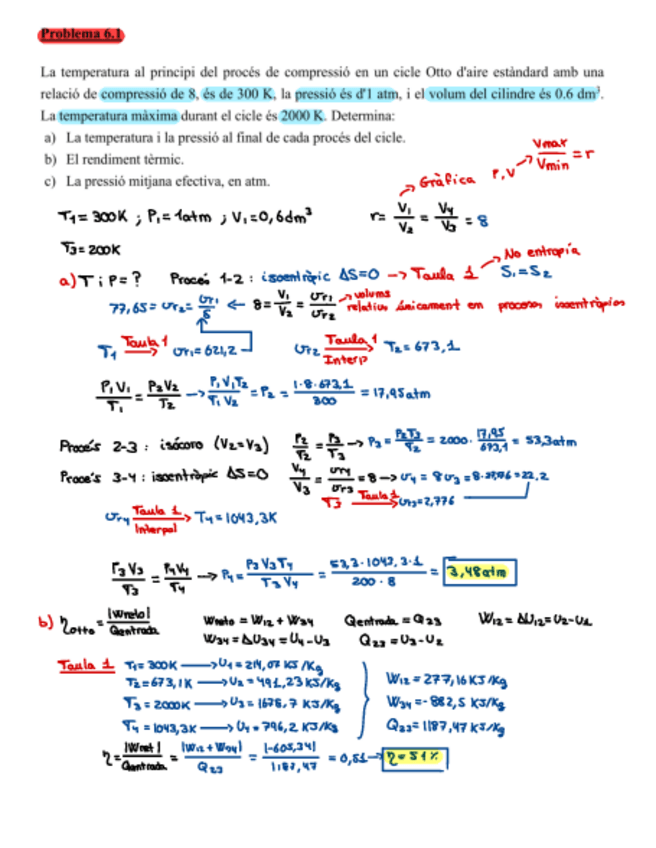 Problema 6.1
La temperatura al principi del procés de compressió en un cicle Otto d'aire estàndard amb una
relació de compressió de 8, és de 300 K, la pressió és d'1 atm, i el volum del cilindre és 0.6 dm³.
La temperatura màxima durant el cicle és 2000 K. Determina:
a) La temperatura i la pressió al final de cada procés del cicle.
b) El rendiment tèrmic.
c) La pressió mitjana efectiva, en atm.
Gràfica P,V → Vmax/Vmin = r
T1 = 300K ; P1 = 1atm ; V1 = 0,6dm³ r = V1/V2 = V4/V3 = 8
T3 = 200K
No entropía
a) T i P = ? Procés 1-2 : isoentròpic ΔS=0 → Taula 1 S1 = S2
77,65 = υr2 = υr1/8 ← 8 = V1/V2 = υr1/υr2 → volums relatius únicament en procesos isoentròpics
T1 Taula 1 → υr1 = 621,2 υr2 Taula 1 Interp → T2 = 673,1
P1V1/T1 = P2V2/T2 → P1V1T2/T1V2 = P2 = 1·8·673,1/300 = 17,95atm
Procés 2-3 : isócoro (V2=V3) P2/T2 = P3/T3 → P3 = P2T3/T2 = 2000 · 17,95/673,1 = 53,3atm
Procés 3-4 : isoentròpic ΔS=0 V4/V3 = υr4/υr3 = 8 → υ4 = 8υ3 = 8· = 22,2
T3 Taula 1 → υr3 = 2,776
υr4 Taula 1 Interpol → T4 = 1043,3K
P3V3/T3 = P4V4/T4 → P4 = P3V3T4/T3V4 = 53,3·1043,3·1/200·8 = 3,48atm
b) ηotto = |Wneto|/Qentrada Wneto = W12 + W34 Qentrada = Q23 W12 = ΔU12 = U2-U1
W34 = ΔU34 = U4-U3 Q23 = U3-U2
Taula 1 T1 = 300K → U1 = 214,07 KJ/Kg
T2 = 673,1K → U2 = 491,23 KJ/Kg W12 = 277,16 KJ/Kg
T3 = 2000K → U3 = 1678,7 KJ/Kg W34 = -882,5 KJ/Kg
T4 = 1043,3K → U4 = 796,2 KJ/Kg Q23 = 1187,47 KJ/Kg
η = |Wnet|/Qentrada = |W12 + W34|/Q23 = |-605,34|/1187,47 = 0,51 → η = 51%